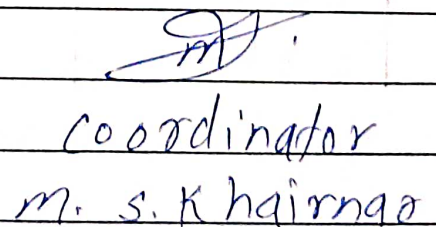 Coordinator
M. S. Khairnar